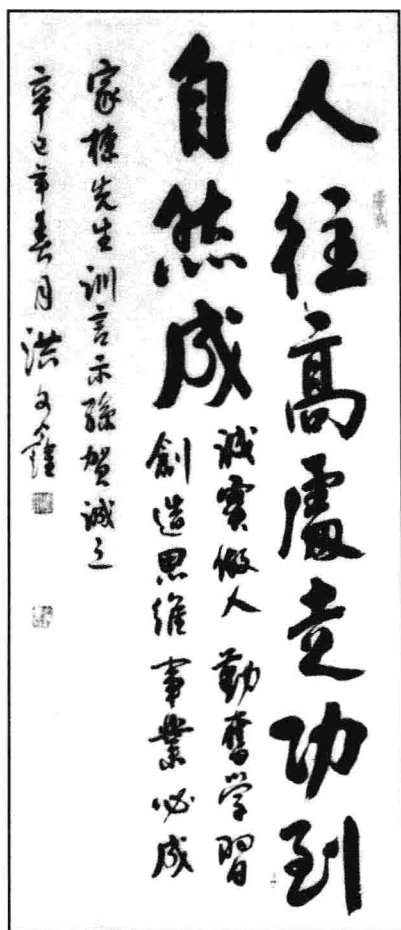 人往高處走功到
自然成
誠實做人 勤奮学習
創造思維 事業必成
家棟先生訓言示孫賀誠之
辛巳年春月 洪文鐘